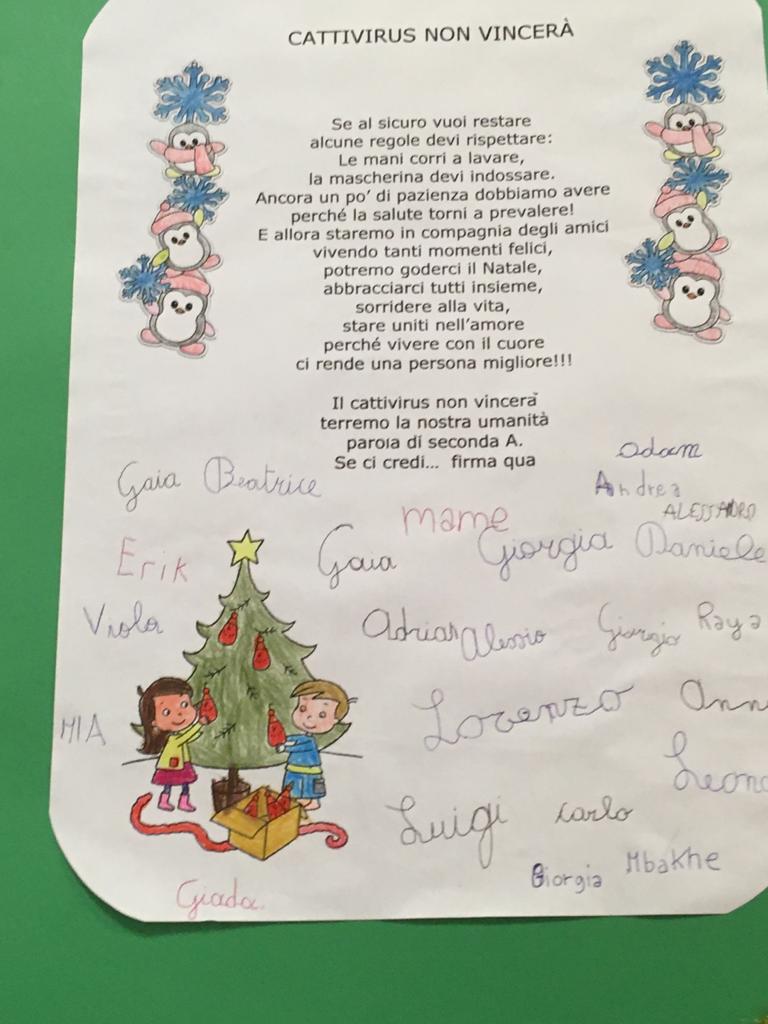 CATTIVIRUS NON VINCERÀ
Se al sicuro vuoi restare
alcune regole devi rispettare:
Le mani corri a lavare,
la mascherina devi indossare.
Ancora un po' di pazienza dobbiamo avere
perché la salute torni a prevalere!
E allora staremo in compagnia degli amici
vivendo tanti momenti felici,
potremo goderci il Natale,
abbracciarci tutti insieme,
sorridere alla vita,
stare uniti nell'amore
perché vivere con il cuore
ci rende una persona migliore!!!
Il cattivirus non vincerà
terremo la nostra umanità
parola di seconda A.
Se ci credi... firma qua
Adam
Gaia Beatrice
Andrea
ALESSANDRO
mame
Erik
Gaia
Giorgia
Daniele
Viola
Adrian
Alessio
Giorgio
Raya
Lorenzo
Ann
MIA
Leon
Luigi
Carlo
Giorgia
Mbakhe
Giada.